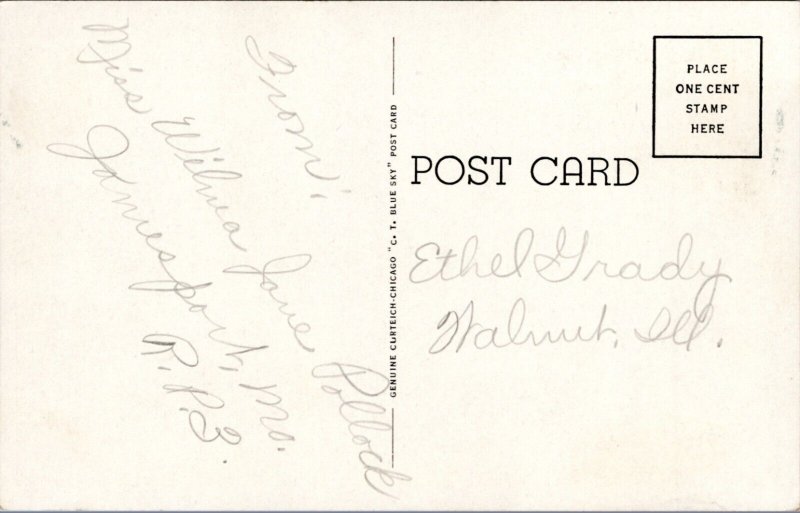 From:
Miss Wilma Jane Pollock
Jamesport, Mo.
R. R. 3.
GENUINE CURTEICH-CHICAGO "C. T. BLUE SKY" POST CARD
PLACE
ONE CENT
STAMP
HERE
POST CARD
Ethel Grady
Walnut, Ill.